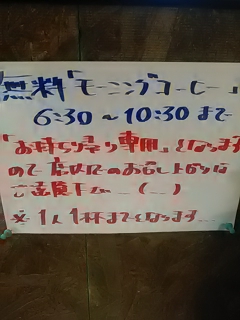 無料「モーニングコーヒー」
6:30～10:30まで
「お持ち帰り専用」となります
ので店内でのお召し上がりは
ご遠慮下さい…(…)
※1人1杯までとなります…